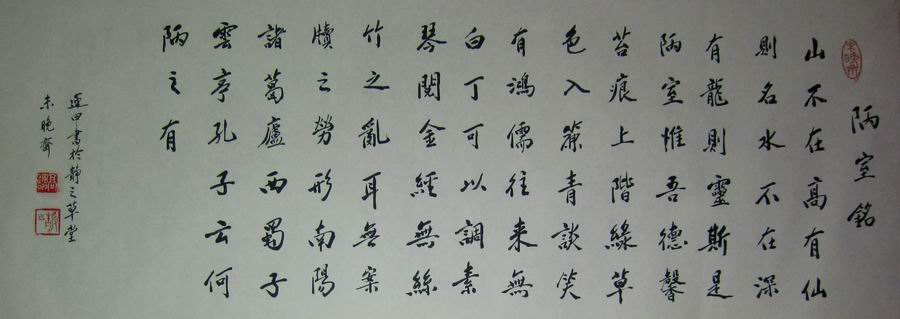 陋室銘
山不在高有仙
則名水不在深
有龍則靈斯是
陋室惟吾德馨
苔痕上階綠草
色入簾青談笑
有鴻儒往来無
白丁可以調素
琴閱金經無絲
竹之亂耳無案
牘之勞形南陽
諸葛廬西蜀子
雲亭孔子云何
陋之有
田書於靜之草堂
未晚齋